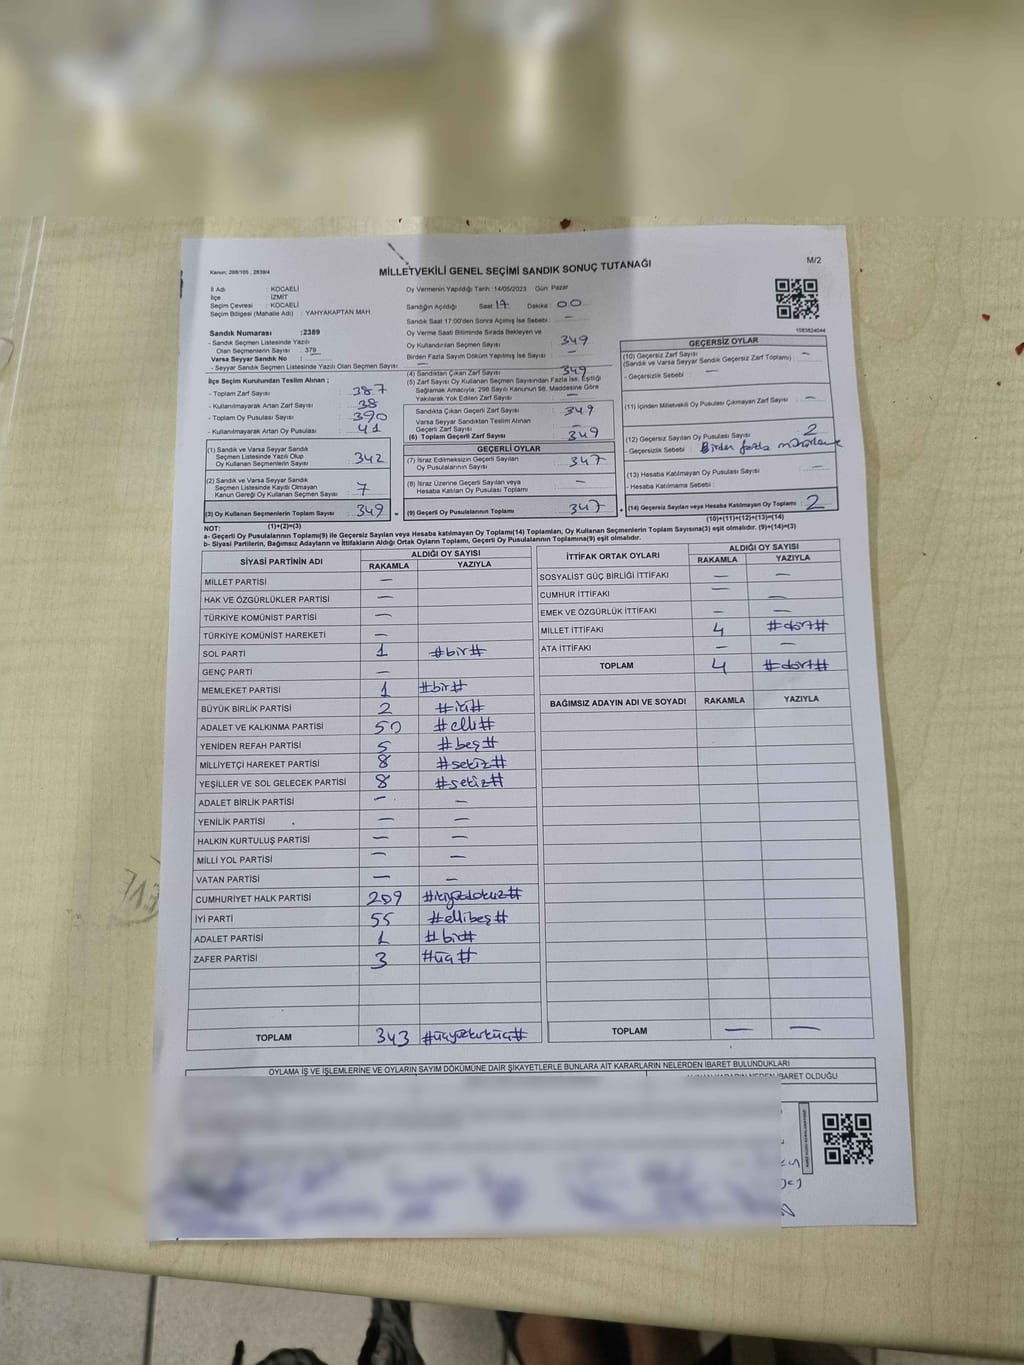 Kanun; 298/105 , 2839/4
MİLLETVEKİLİ GENEL SEÇİMİ SANDIK SONUÇ TUTANAĞI
M/2
İl Adı : KOCAELİ
İlçe : İZMİT
Seçim Çevresi : KOCAELİ
Seçim Bölgesi (Mahalle Adı) : YAHYAKAPTAN MAH.
Sandık Numarası :2389
- Sandık Seçmen Listesinde Yazılı
Olan Seçmenlerin Sayısı : 379
Varsa Seyyar Sandık No :
- Seyyar Sandık Seçmen Listesinde Yazılı Olan Seçmen Sayısı
Oy Vermenin Yapıldığı Tarih :14/05/2023 Gün: Pazar
Sandığın Açıldığı Saat 17 Dakika 00
Sandık Saat 17:00'den Sonra Açılmış İse Sebebi : —
Oy Verme Saati Bitiminde Sırada Bekleyen ve
Oy Kullandırılan Seçmen Sayısı 349
Birden Fazla Sayım Döküm Yapılmış İse Sayısı —
1083824044
İlçe Seçim Kurulundan Teslim Alınan ;
- Toplam Zarf Sayısı : 387
- Kullanılmayarak Artan Zarf Sayısı : 38
- Toplam Oy Pusulası Sayısı : 390
- Kullanılmayarak Artan Oy Pusulası : 41
(1) Sandık ve Varsa Seyyar Sandık
Seçmen Listesinde Yazılı Olup
Oy Kullanan Seçmenlerin Sayısı 342
(2) Sandık ve Varsa Seyyar Sandık
Seçmen Listesinde Kaydı Olmayan
Kanun Gereği Oy Kullanan Seçmen Sayısı 7
(3) Oy Kullanan Seçmenlerin Toplam Sayısı 349
(1)+(2)=(3)
(4) Sandıktan Çıkan Zarf Sayısı 349
(5) Zarf Sayısı Oy Kullanan Seçmen Sayısından Fazla İse, Eşitliği
Sağlamak Amacıyla; 298 Sayılı Kanunun 98. Maddesine Göre
Yakılarak Yok Edilen Zarf Sayısı : —
Sandıkta Çıkan Geçerli Zarf Sayısı 349
Varsa Seyyar Sandıktan Teslim Alınan
Geçerli Zarf Sayısı —
(6) Toplam Geçerli Zarf Sayısı 349
GEÇERLİ OYLAR
(7) İtiraz Edilmeksizin Geçerli Sayılan
Oy Pusulalarının Sayısı 347
(8) İtiraz Üzerine Geçerli Sayılan ve
Hesaba Katılan Oy Pusulası Toplamı —
(9) Geçerli Oy Pusulalarının Toplamı 347
GEÇERSİZ OYLAR
(10) Geçersiz Zarf Sayısı —
(Sandık ve Varsa Seyyar Sandık Geçersiz Zarf Toplamı)
- Geçersizlik Sebebi : —
(11) İçinden Milletvekili Oy Pusulası Çıkmayan Zarf Sayısı —
(12) Geçersiz Sayılan Oy Pusulası Sayısı 2
- Geçersizlik Sebebi : Birden fazla mühürleme
(13) Hesaba Katılmayan Oy Pusulası Sayısı —
- Hesaba Katılmama Sebebi :
(14) Geçersiz Sayılan veya Hesaba Katılmayan Oy Toplamı 2
(10)+(11)+(12)+(13)=(14)
NOT:
a- Geçerli Oy Pusulalarının Toplamı(9) ile Geçersiz Sayılan veya Hesaba Katılmayan Oy Toplamı(14) Toplamları, Oy Kullanan Seçmenlerin Toplam Sayısına(3) eşit olmalıdır. (9)+(14)=(3)
b- Siyasi Partilerin, Bağımsız Adayların ve İttifakların Aldığı Ortak Oyların Toplamı, Geçerli Oy Pusulalarının Toplamına(9) eşit olmalıdır.
SİYASİ PARTİNİN ADI ALDIĞI OY SAYISI
RAKAMLA YAZIYLA
MİLLET PARTİSİ —
HAK VE ÖZGÜRLÜKLER PARTİSİ —
TÜRKİYE KOMÜNİST PARTİSİ —
TÜRKİYE KOMÜNİST HAREKETİ —
SOL PARTİ 1 #bir#
GENÇ PARTİ —
MEMLEKET PARTİSİ 1 #bir#
BÜYÜK BİRLİK PARTİSİ 2 #iki#
ADALET VE KALKINMA PARTİSİ 50 #elli#
YENİDEN REFAH PARTİSİ 5 #beş#
MİLLİYETÇİ HAREKET PARTİSİ 8 #sekiz#
YEŞİLLER VE SOL GELECEK PARTİSİ 8 #sekiz#
ADALET BİRLİK PARTİSİ — —
YENİLİK PARTİSİ — —
HALKIN KURTULUŞ PARTİSİ — —
MİLLİ YOL PARTİSİ — —
VATAN PARTİSİ — —
CUMHURİYET HALK PARTİSİ 209 #ikiyüzdokuz#
İYİ PARTİ 55 #ellibeş#
ADALET PARTİSİ 1 #bir#
ZAFER PARTİSİ 3 #üç#
TOPLAM 343 #üçyüzkırküç#
İTTİFAK ORTAK OYLARI ALDIĞI OY SAYISI
RAKAMLA YAZIYLA
SOSYALİST GÜÇ BİRLİĞİ İTTİFAKI — —
CUMHUR İTTİFAKI — —
EMEK VE ÖZGÜRLÜK İTTİFAKI — —
MİLLET İTTİFAKI 4 #dört#
ATA İTTİFAKI — —
TOPLAM 4 #dört#
BAĞIMSIZ ADAYIN ADI VE SOYADI RAKAMLA YAZIYLA
TOPLAM — —
OYLAMA İŞ VE İŞLEMLERİNE VE OYLARIN SAYIM DÖKÜMÜNE DAİR ŞİKAYETLERLE BUNLARA AİT KARARLARIN NELERDEN İBARET BULUNDUKLARI
İBARET OLDUĞU